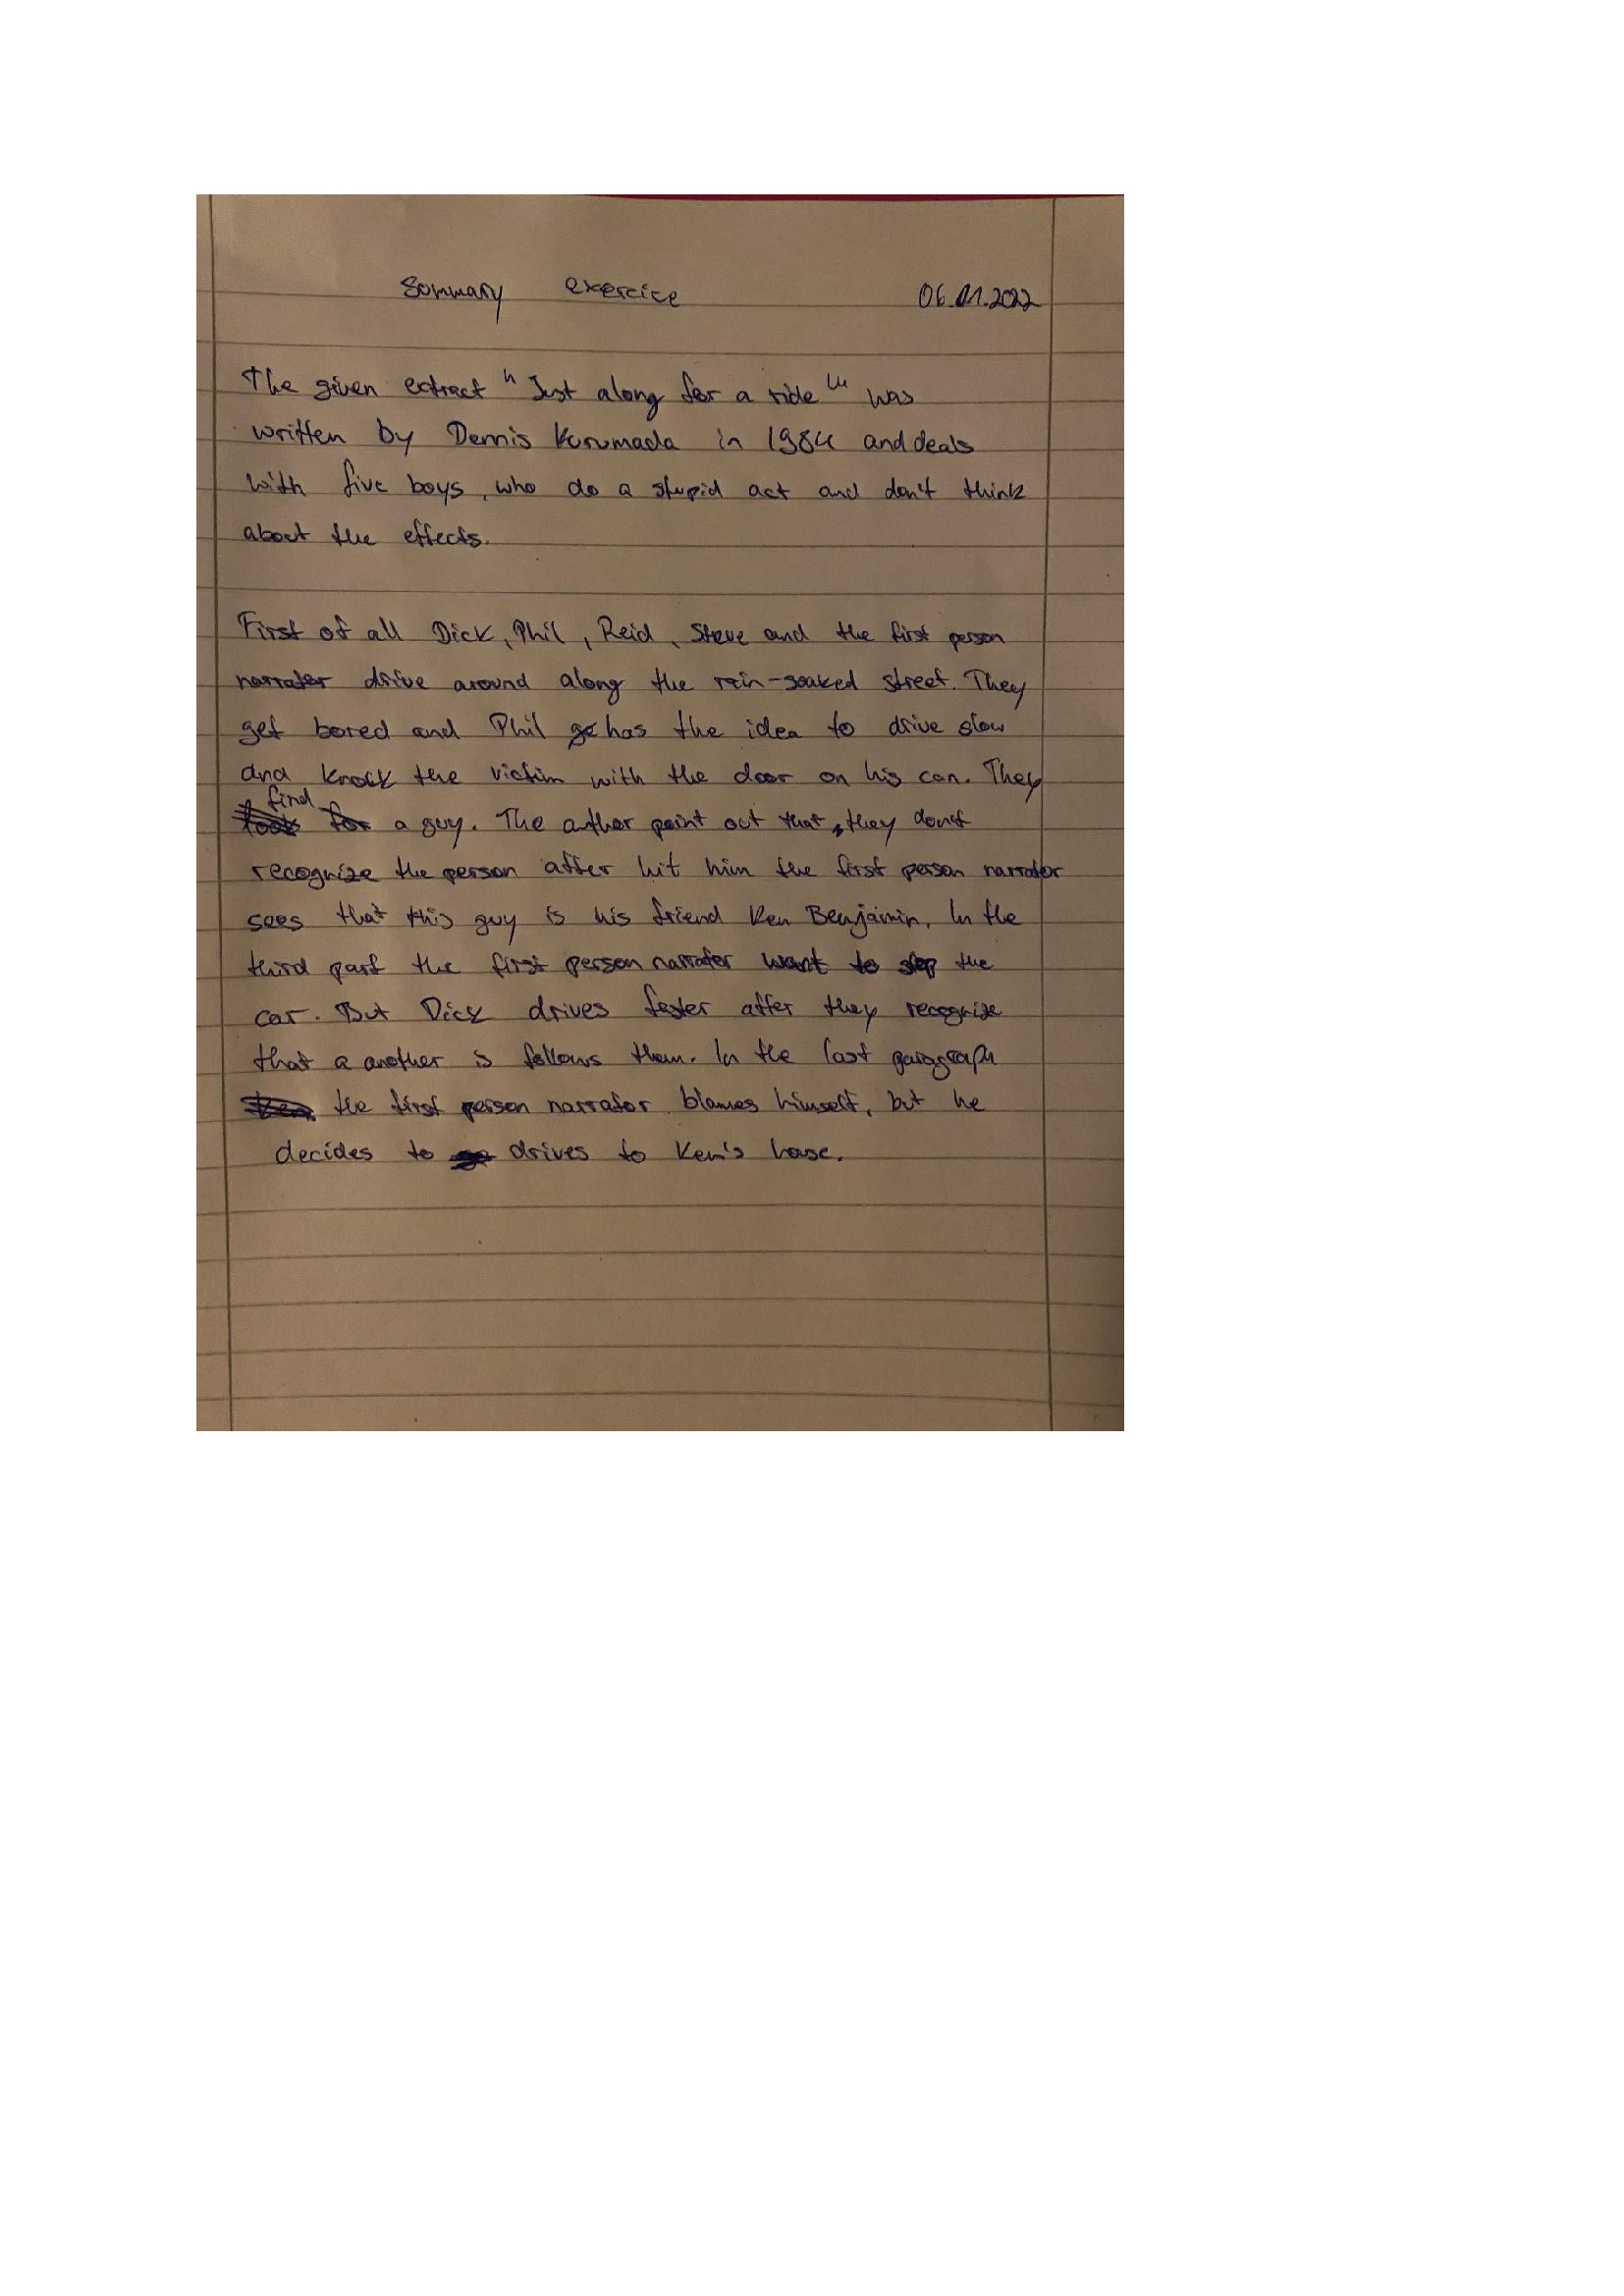 Summary exercice 06.01.2022
The given extract " Just along for a ride " was
written by Dennis Kurumada in 1984 and deals
with five boys, who do a stupid act and don't think
about the effects.
First of all Dick, Phil, Reid, Steve and the first person
narrator drive around along the rain-soaked street. They
get bored and Phil has the idea to drive slow
and knock the victim with the door on his can. They
find a guy. The author point out that, they donst
recognize the person after hit him the first person narrator
sees that this guy is his friend Ken Benjamin. In the
third part the first person narrator want to stop the
car. But Dick drives faster after they recognize
that a another is follows them. In the last paragraph
the first person narrator blames himself, but he
decides to drives to Ken's hose.